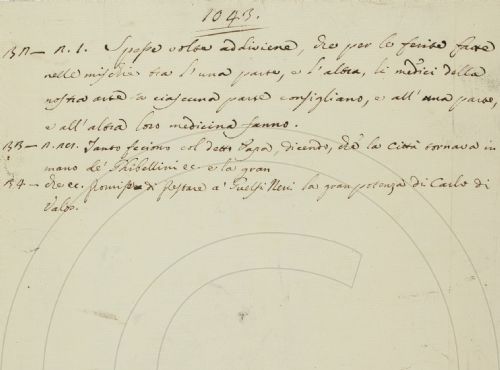 1043.
BN — n. 1. Spesse volte addiviene, che per le ferite fatte
nelle mischie tra l'una parte, e l'altra, li medici della
nostra arte a ciascuna parte consigliano, e all'una parte,
e all'altra loro medicina fanno.
n. 101. Tanto feciono col detto Papa, dicendo, che la Città tornava in
mano de' Ghibellini ec e la gran
che ec. promisse di prestare a' Guelfi Neri la gran potenza di Carlo di
Valos.